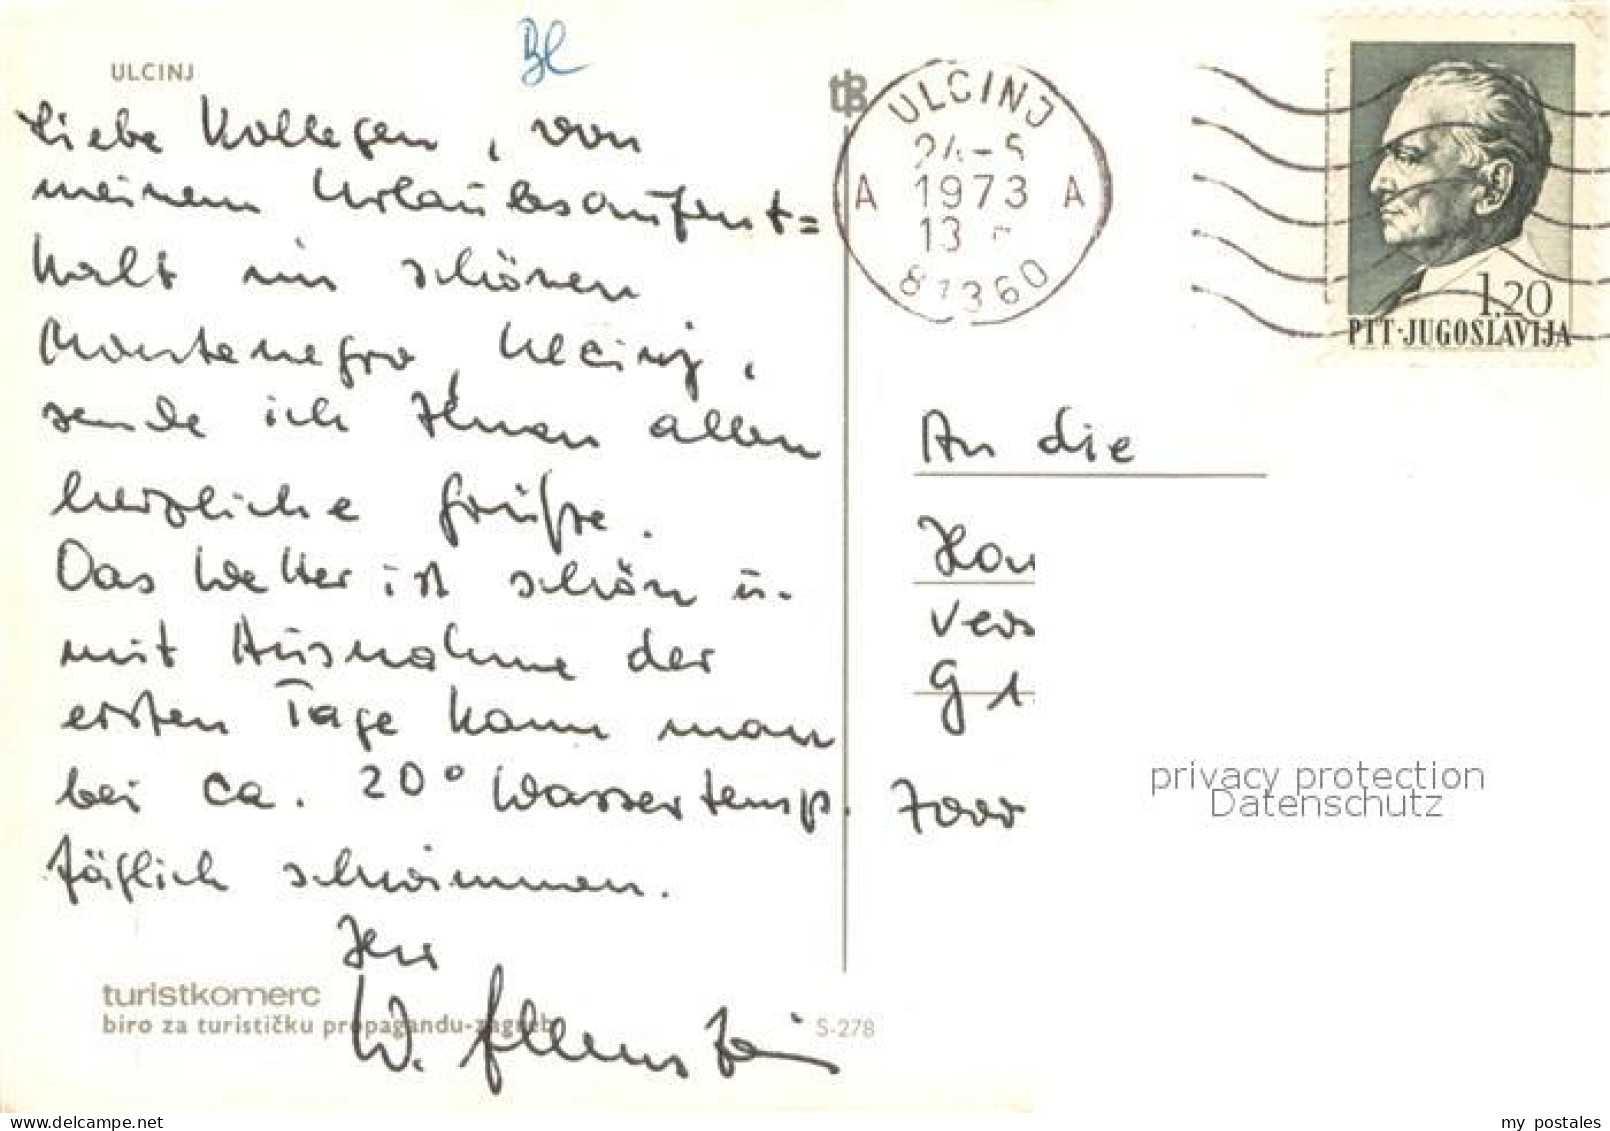 ULCINJ
Bl
Liebe Kollegen, von
meinem Urlaubsaufent=
halt im schönen
Montenegro, Ulcinj,
sende ich Ihnen allen
herzliche Grüße.
Das Wetter ist schön u.
mit Ausnahme der
ersten Tage kann man
bei ca. 20° Wassertemp.
täglich schwimmen.
Ihr
W.
turistkomerc
biro za turističku propagandu-zagreb
S-278
tB
ULCINJ
1973
A A
13
81360
1,20
PTT·JUGOSLAVIJA
An die
Kon
Vers
G 1
privacy protection
Datenschutz
delcampe.net
my_postales